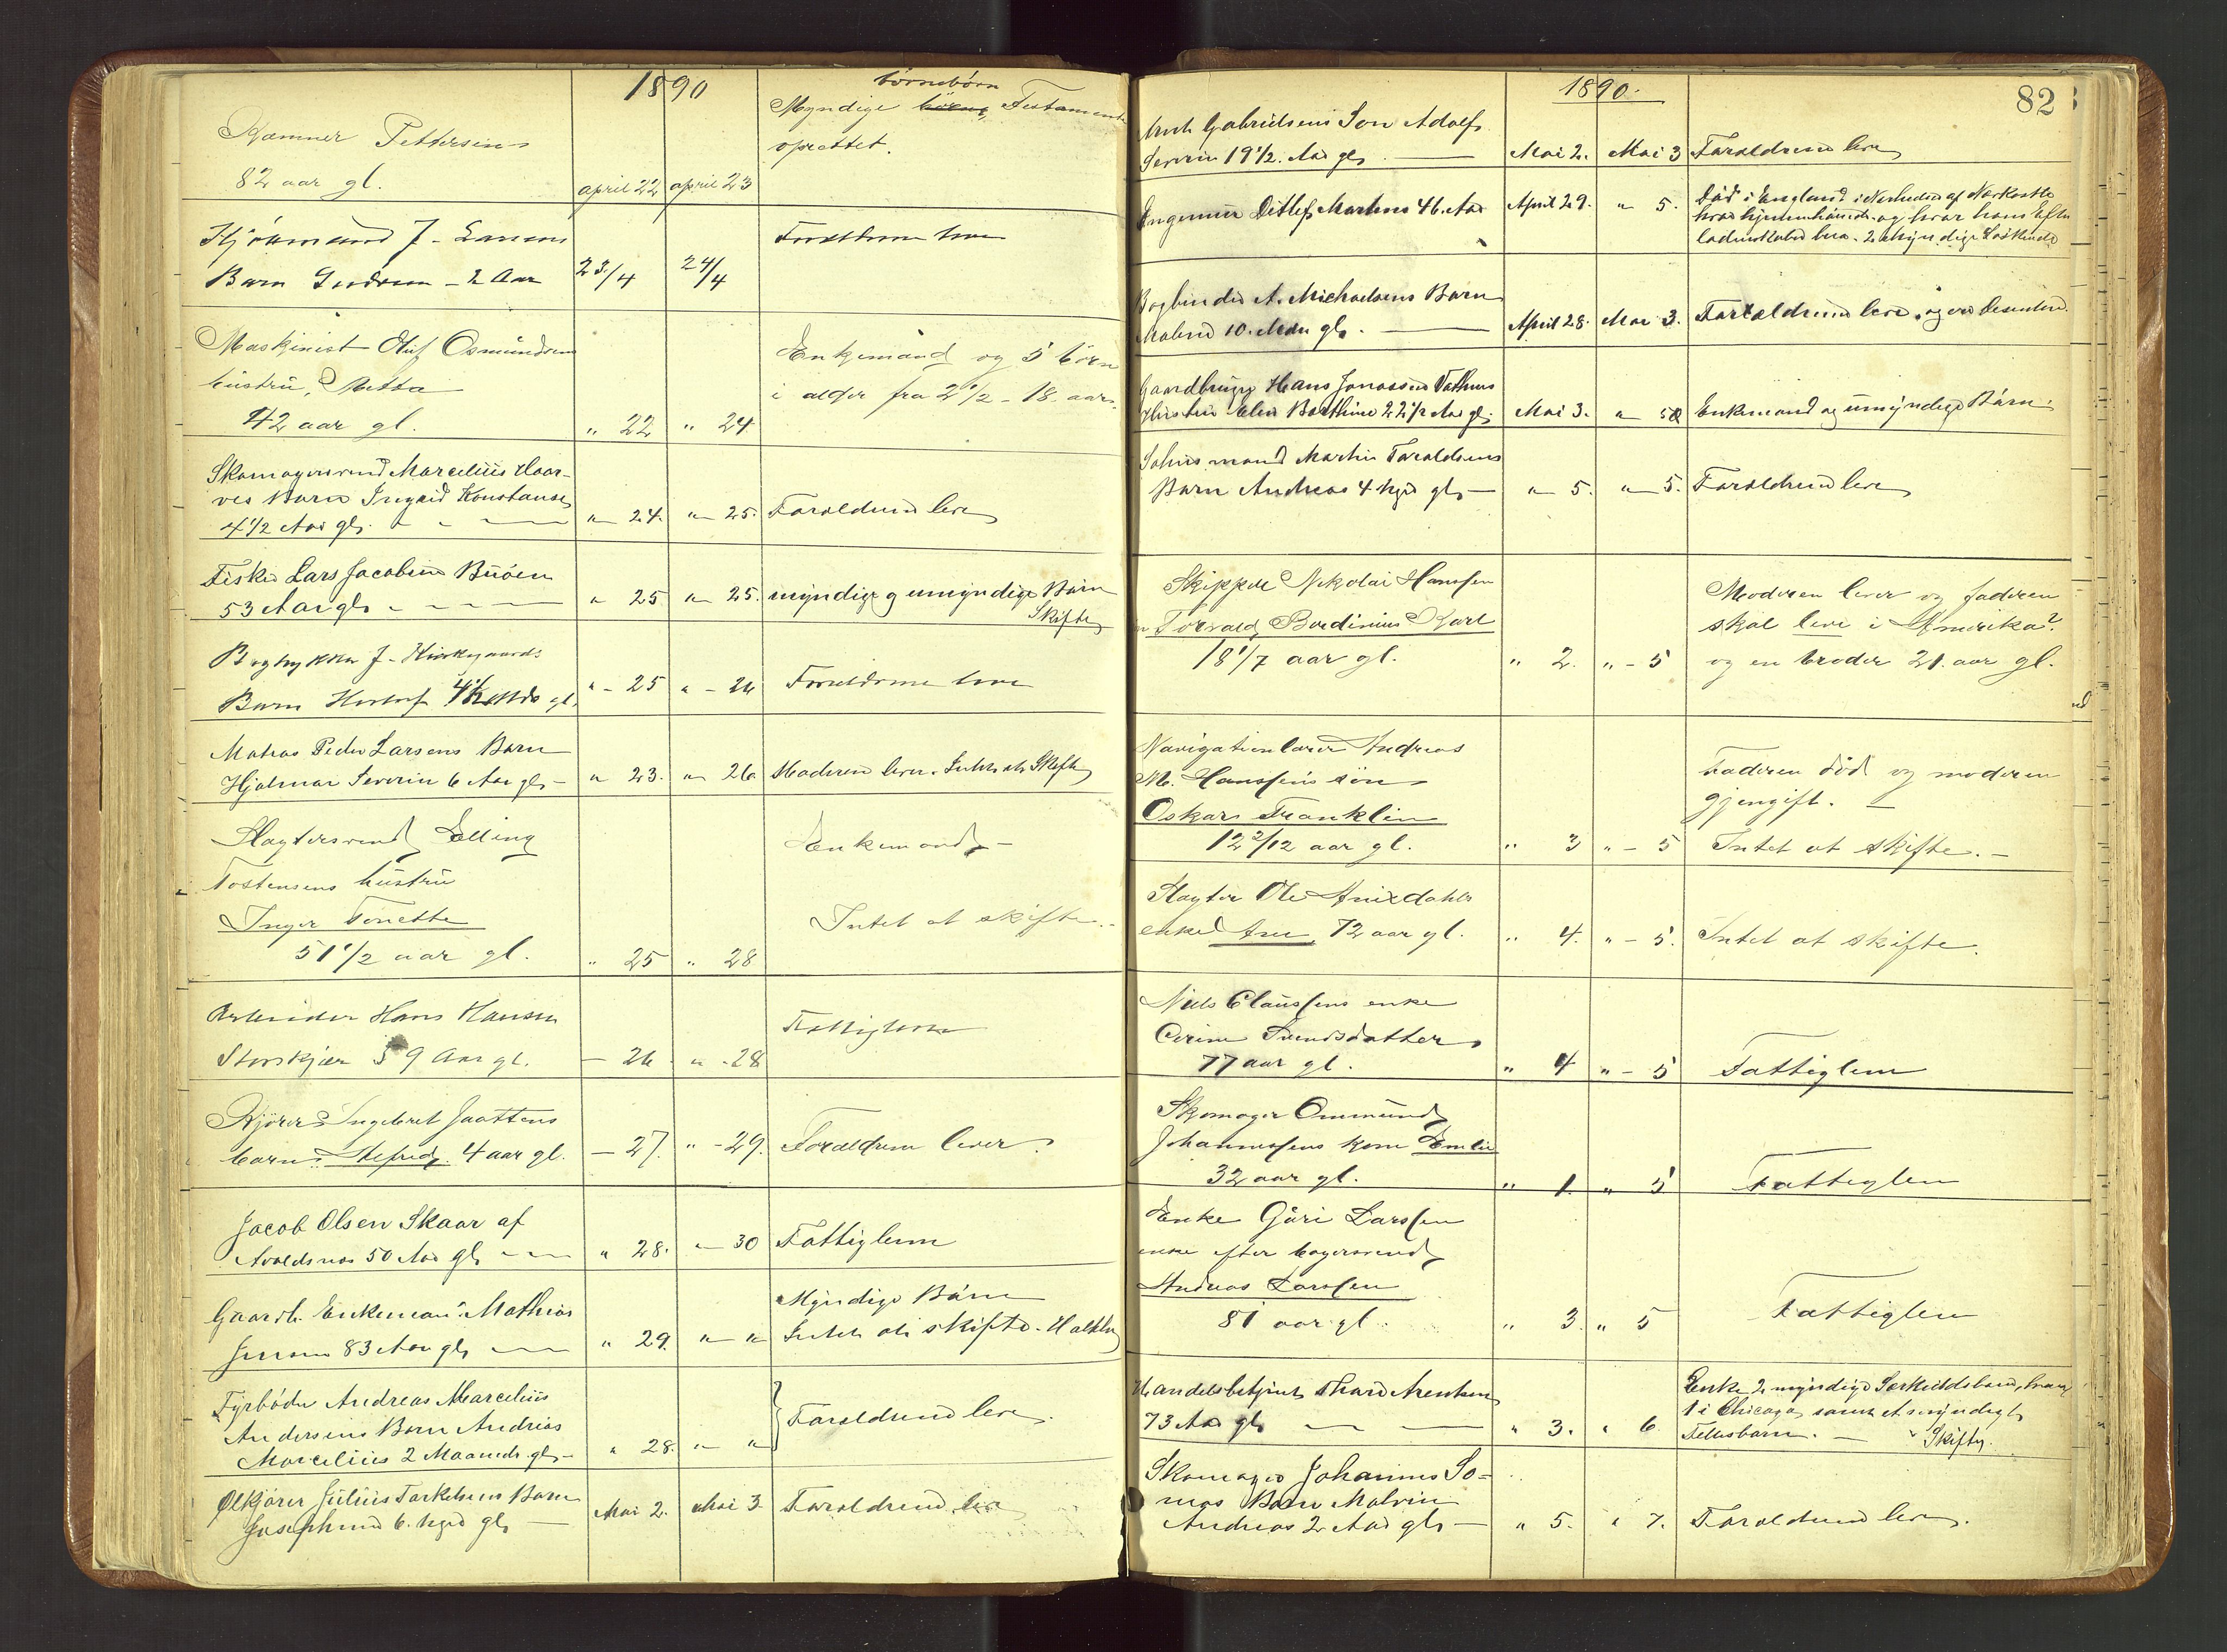 1890
Kæmner Pettersen
82 aar gl. april 22 april 23
børnebørn
Myndige børn, Testament
oprettet.
J. Larsens
Barn Gudrun - 2 Aar 23/4 24/4 Forældrene lever
Maskinist Oluf Osmundsens
hustru,
42 aar gl. " 22 " 24
Enkemand og 5 børn
i alder fra 2 1/2 - 18 aar.
Skomagersvend Marcelius Haar-
ves Barn Ingrid Konstanse
4 1/2 Aar gl. " 24. " 25. Forældrene lever
Fisker Lars Jacobsen Buøen
53 Aar gl. " 25 " 25. myndige og umyndige Børn
Skifte
J. Kirkegaards
Barn gl. " - 25 " - 26 Forældrene lever
Matros Peder Larsens Barn
Hjalmar Severin 6 Aar gl. - " 23. " 26 Moderen lever. Intet at Skifte
Slagtersvend Elling
Tostensens hustru
Inger Tonette
51 1/2 aar gl. " 25 " 28
Enkemand. -
Intet at skifte. -
Arbeider Hans Hansen
Storskjær 59 Aar gl. - 26 " - 28 Fattiglem
Kjører Ingebret Jaattens
barn 4 aar gl. - 27. " - 29. Forældrene lever.
Jacob Olsen Skaar af
Avaldsnes 50 Aar gl. " 28. " 30 Fattiglem
Gaardb. Enkemand Mathias
Jenssen 83 Aar gl. " 29. " "
Myndige Børn
Intet at skifte.
Fyrbøder Andreas Marcelius
Andersens Barn Andreas
Marcelius 2 Maaneder gl. - " 28. " " Forældrene lever.
Ølkjører Julius Torkelsens Barn
Josephine 6. Uger gl. - Mai 2. Mai 3. Forældrene lever
1890.
82
Gabrielsens Søn Adolf
Severin 19 1/2. Aar gl. Mai 2. Mai 3 Forældrene lever
Ingeniør Ditlef Martens 46. Aar April 29. " 5.
Død i England i Nærheden af Newkastle
hvor hjemmehørende og hvor hans Efter
ladenskaber bero. 2 Myndige Søskende
Bogbinder A. Michaelsens Barn
Malene 10. Mdr. gl. - April 28. Mai 3. Forældrene lever og ere
Gaardbruger Hans Jonassen Vathnes
Hustru Elen Berthine 22 1/2 Aar gl. Mai 3. " 5 Enkemand og umyndige Børn.
Martin Toraldsens
Barn Andreas 4 Uger gl. - " 5. " 5. Forældrene lever
Skipper Nikolai Hanssen
Torvald Berdinius Karl
18 1/7 aar gl. " 2. " - 5
Moderen lever og faderen
skal leve i Amerika?
og en broder 21. aar gl.
Navigationlærer Andreas
M. Hanssens søn
Oskar Franklin
12 2/12 aar gl. " 3 " - 5
Faderen død og moderen
gjengift. -
Intet at skifte. -
Slagter Ole Anisdahls
enke Ane, 72 aar gl. " 4. " - 5. Intet at skifte.
Niels Claussens enke
Cerine Svendsdatter
77 aar gl. " 4 " - 5 Fattiglem
Skomager Ommund
Johannessens kone Emlie
32 aar gl. " 1. " 5 Fattiglem
Enke Gùri Larssen
enke efter bagersvend
Andreas Larssen
81 aar gl. " 3. " 5 Fattiglem
Handelsbetjent Thard Arentsen
73 Aar gl. " 3. " 6.
Enke, 2 myndige Særkuldsbørn, hvoraf
1 i Chicago, samt et umyndigt
Fellesbarn. - Skifte.
Skomager Johannes So-
mes Barn Malvin
Andreas 2 Aar gl. - " 5. " 7. Forældrene lever.